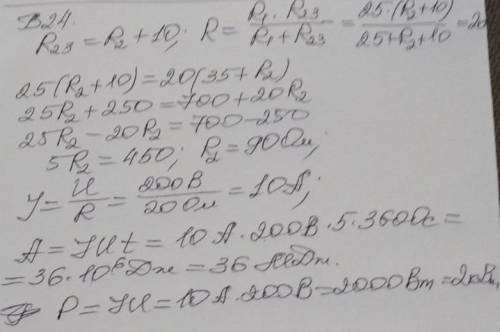 В24.
R₂₃ = R₂ + 10; R = (R₁ · R₂₃)/(R₁ + R₂₃) = (25 · (R₂ + 10))/(25 + R₂ + 10) = 20
25(R₂ + 10) = 20(35 + R₂)
25R₂ + 250 = 700 + 20R₂
25R₂ − 20R₂ = 700 − 250
5R₂ = 450; R₂ = 90 Ом;
J = U/R = 200В/20Ом = 10А;
A = JUt = 10А · 200В · 5 · 3600с =
= 36 · 10⁶ Дж = 36 МДж.
P = JU = 10А · 200В = 2000Вт = 2кВт